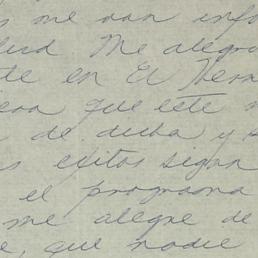 me van info
Me alegro
te en El
que este
de dicha y
exitos sigan
el programa
me alegre de
que nadie